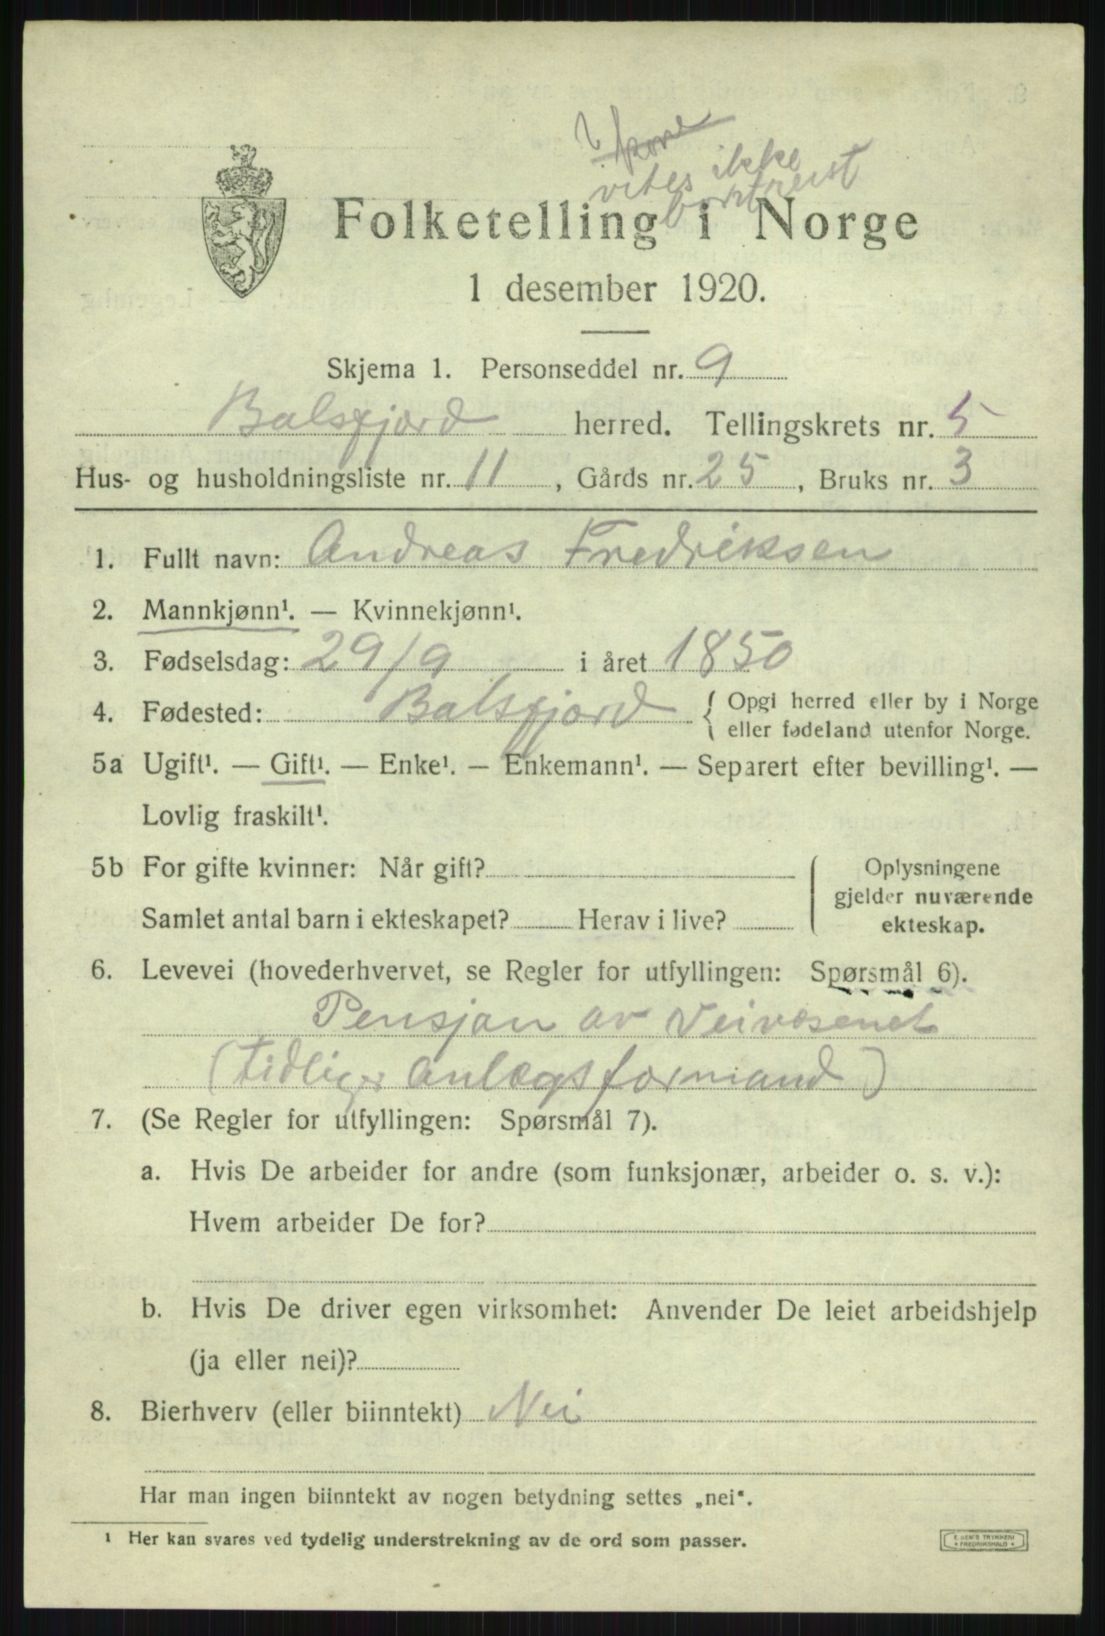 vites ikke
bortreist
Folketelling i Norge
1 desember 1920.
Skjema 1. Personseddel nr. 9
Balsfjord herred. Tellingskrets nr. 5
Hus- og husholdningsliste nr. 11, Gårds nr. 25, Bruks nr. 3
1. Fullt navn: Andreas Fredriksen
2. Mannkjønn¹. — Kvinnekjønn¹.
3. Fødselsdag: 29/9 i året 1850
4. Fødested: Balsfjord { Opgi herred eller by i Norge
eller fødeland utenfor Norge.
5a Ugift¹. — Gift¹. — Enke¹. — Enkemann¹. — Separert efter bevilling¹. —
Lovlig fraskilt¹.
5b For gifte kvinner: Når gift?
Samlet antal barn i ekteskapet? Herav i live?
Oplysningene
gjelder nuværende
ekteskap.
6. Levevei (hovederhvervet, se Regler for utfyllingen: Spørsmål 6).
Pensjon av Veivæsenet
(tidliger anlægsformand)
7. (Se Regler for utfyllingen: Spørsmål 7).
a. Hvis De arbeider for andre (som funksjonær, arbeider o. s. v.):
Hvem arbeider De for?
b. Hvis De driver egen virksomhet: Anvender De leiet arbeidshjelp
(ja eller nei)?
8. Bierhverv (eller biinntekt) Nei
Har man ingen biinntekt av nogen betydning settes „nei".
¹ Her kan svares ved tydelig understrekning av de ord som passer.